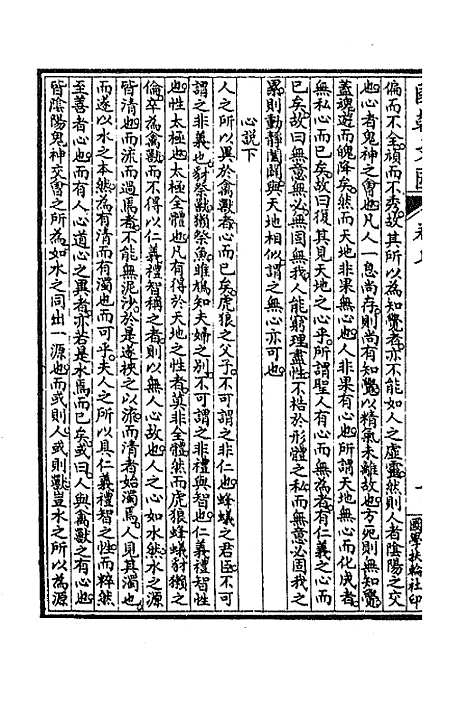 國朝文匯
卷七
國學扶輪社印
偏而不全頑而不秀故其所以為知覺者亦不能如人之虛靈然則人者陰陽之交
也心者鬼神之會也凡人一息尚存則尚有知覺以精氣未離故也方死則無知覺
蓋魂遊而魄降矣然而天地非果無心也人非果有心也所謂天地無心而化成者
無私心而已矣故曰復其見天地之心乎所謂聖人有心而無為者有仁義之心而
已矣故曰無意無必無固無我人能窮理盡性不梏於形體之私而無意必固我之
累則動靜闔闢與天地相似謂之無心亦可也
心說下
人之所以異於禽獸者心而已矣虎狼之父子不可謂之非仁也蜂蟻之君臣不可
謂之非義也豺祭獸獺祭魚雎鳩知夫婦之別不可謂之非禮與智也仁義禮智性
也性太極也太極全體也凡有得於天地之性者莫非全體然而虎狼蜂蟻豺獺之
倫卒為禽獸而不得以仁義禮智稱之者則以無人心故也人之心如水然水之源
皆清也而流而過焉者不能無泥沙於是遂挾之以流而清者始濁焉人見其濁也
而遂以水之本然為有清而有濁也而可乎夫人之所以具仁義禮智之性而粹然
至善者心也而有人心道心之異者亦若是水焉而已矣或曰人與禽獸之有心也
皆陰陽鬼神交會之所為如水之同出一源也而或則人或則獸豈水之所以為源